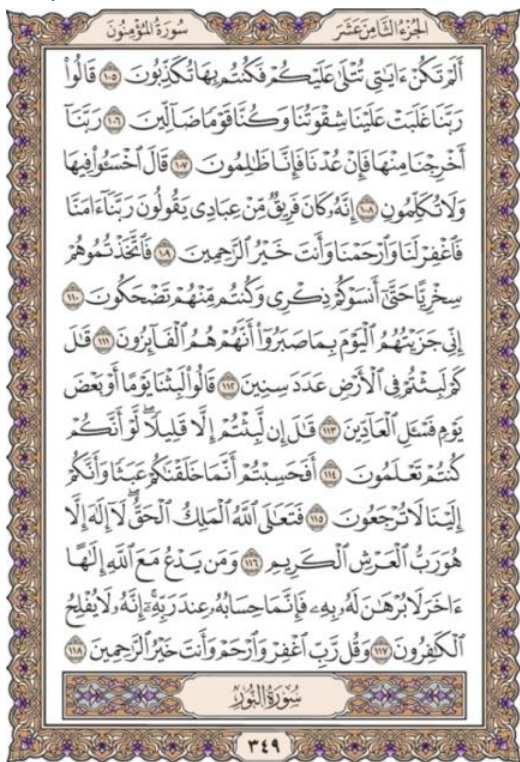 الجزء الثامن عشر سورة المؤمنون
أَلَمْ تَكُنْ ءَايَٰتِى تُتْلَىٰ عَلَيْكُمْ فَكُنتُم بِهَا تُكَذِّبُونَ ١٠٥ قَالُوا۟
رَبَّنَا غَلَبَتْ عَلَيْنَا شِقْوَتُنَا وَكُنَّا قَوْمًا ضَآلِّينَ ١٠٦ رَبَّنَآ
أَخْرِجْنَا مِنْهَا فَإِنْ عُدْنَا فَإِنَّا ظَٰلِمُونَ ١٠٧ قَالَ ٱخْسَـُٔوا۟ فِيهَا
وَلَا تُكَلِّمُونِ ١٠٨ إِنَّهُۥ كَانَ فَرِيقٌ مِّنْ عِبَادِى يَقُولُونَ رَبَّنَآ ءَامَنَّا
فَٱغْفِرْ لَنَا وَٱرْحَمْنَا وَأَنتَ خَيْرُ ٱلرَّٰحِمِينَ ١٠٩ فَٱتَّخَذْتُمُوهُمْ
سِخْرِيًّا حَتَّىٰٓ أَنسَوْكُمْ ذِكْرِى وَكُنتُم مِّنْهُمْ تَضْحَكُونَ ١١٠
إِنِّى جَزَيْتُهُمُ ٱلْيَوْمَ بِمَا صَبَرُوٓا۟ أَنَّهُمْ هُمُ ٱلْفَآئِزُونَ ١١١ قَٰلَ
كَمْ لَبِثْتُمْ فِى ٱلْأَرْضِ عَدَدَ سِنِينَ ١١٢ قَالُوا۟ لَبِثْنَا يَوْمًا أَوْ بَعْضَ
يَوْمٍ فَسْـَٔلِ ٱلْعَآدِّينَ ١١٣ قَٰلَ إِن لَّبِثْتُمْ إِلَّا قَلِيلًا ۖ لَّوْ أَنَّكُمْ
كُنتُمْ تَعْلَمُونَ ١١٤ أَفَحَسِبْتُمْ أَنَّمَا خَلَقْنَٰكُمْ عَبَثًا وَأَنَّكُمْ
إِلَيْنَا لَا تُرْجَعُونَ ١١٥ فَتَعَٰلَى ٱللَّهُ ٱلْمَلِكُ ٱلْحَقُّ ۖ لَآ إِلَٰهَ إِلَّا
هُوَ رَبُّ ٱلْعَرْشِ ٱلْكَرِيمِ ١١٦ وَمَن يَدْعُ مَعَ ٱللَّهِ إِلَٰهًا
ءَاخَرَ لَا بُرْهَٰنَ لَهُۥ بِهِۦ فَإِنَّمَا حِسَابُهُۥ عِندَ رَبِّهِۦٓ ۚ إِنَّهُۥ لَا يُفْلِحُ
ٱلْكَٰفِرُونَ ١١٧ وَقُل رَّبِّ ٱغْفِرْ وَٱرْحَمْ وَأَنتَ خَيْرُ ٱلرَّٰحِمِينَ ١١٨
سورة النور
٣٤٩